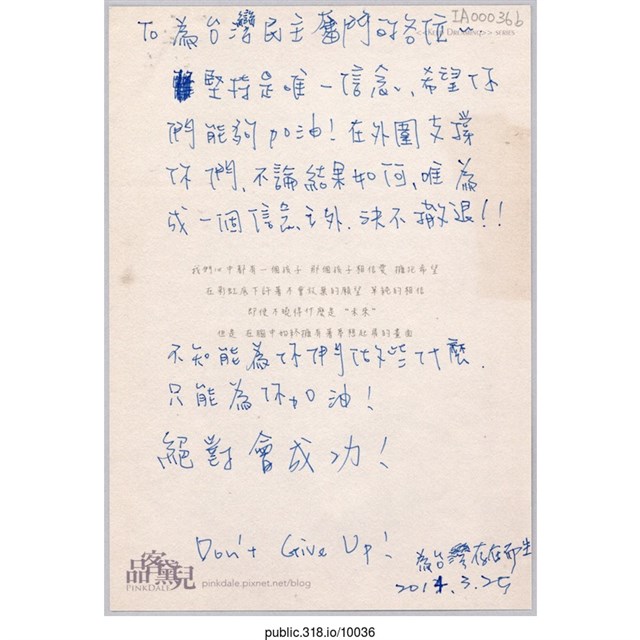 IA00036b
To 為台灣民主奮鬥的各位~
<< Keep Dreaming >> series
堅持是唯一信念,希望你
們能夠加油!在外圍支撐
你們,不論結果如何,唯為
成一個信念主外,決不撤退!!
我們心中都有一個孩子 那個孩子相信愛 擁抱希望
在彩虹底下許著不會放棄的願望 單純的相信
即使不曉得什麼是“未來”
但是 在腦中始終擁有著夢想起飛的畫面
不知能為你們做些什麼.
只能為你加油!
絕對會成功!
Don't Give Up!
為台灣存在而生
2014.3.25
品客黛兒
PINKDALE
pinkdale.pixnet.net/blog
public.318.io/10036